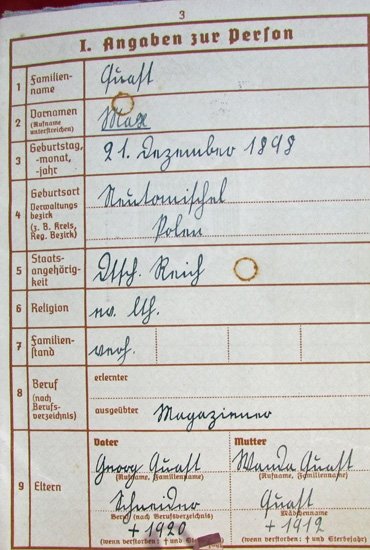 3
I. Angaben zur Person
1 Familien-
name
Quast
2 Vornamen
(Rufname
unterstreichen)
Max
3 Geburtstag,
-monat,
-jahr
21. Dezember 1898
4 Geburtsort
Verwaltungs
bezirk
(z. B. Kreis,
Reg. Bezirk)
Neutomischel
Polen
5 Staats-
angehörig-
keit
Dtsch. Reich
6 Religion
ev. lth.
7 Familien-
stand
verh.
8 Beruf
(nach
Berufs-
verzeichnis)
erlernter
ausgeübter Magaziener
9 Eltern
Vater
Georg Quast
(Rufname, Familienname)
Schneider
Beruf (nach Berufsverzeichnis)
† 1920
(wenn verstorben: † und Sterbe
Mutter
Wanda Quast
(Rufname, Familienname)
Quast
Mädchenname
† 1912
(wenn verstorben: † und Sterbejahr)